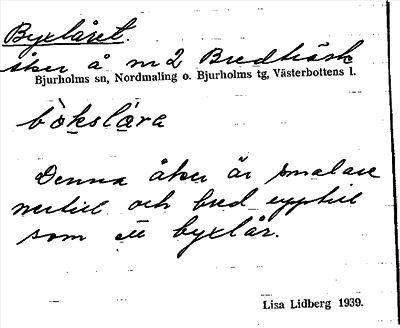 Byxlåret.
åker å m 2 Bredträsk
Bjurholms sn, Nordmaling o. Bjurholms tg, Västerbottens l.
bòkslæra
Denna åker är smalare
nertill och bred upptill
som ett byxlår.
Lisa Lidberg 1939.